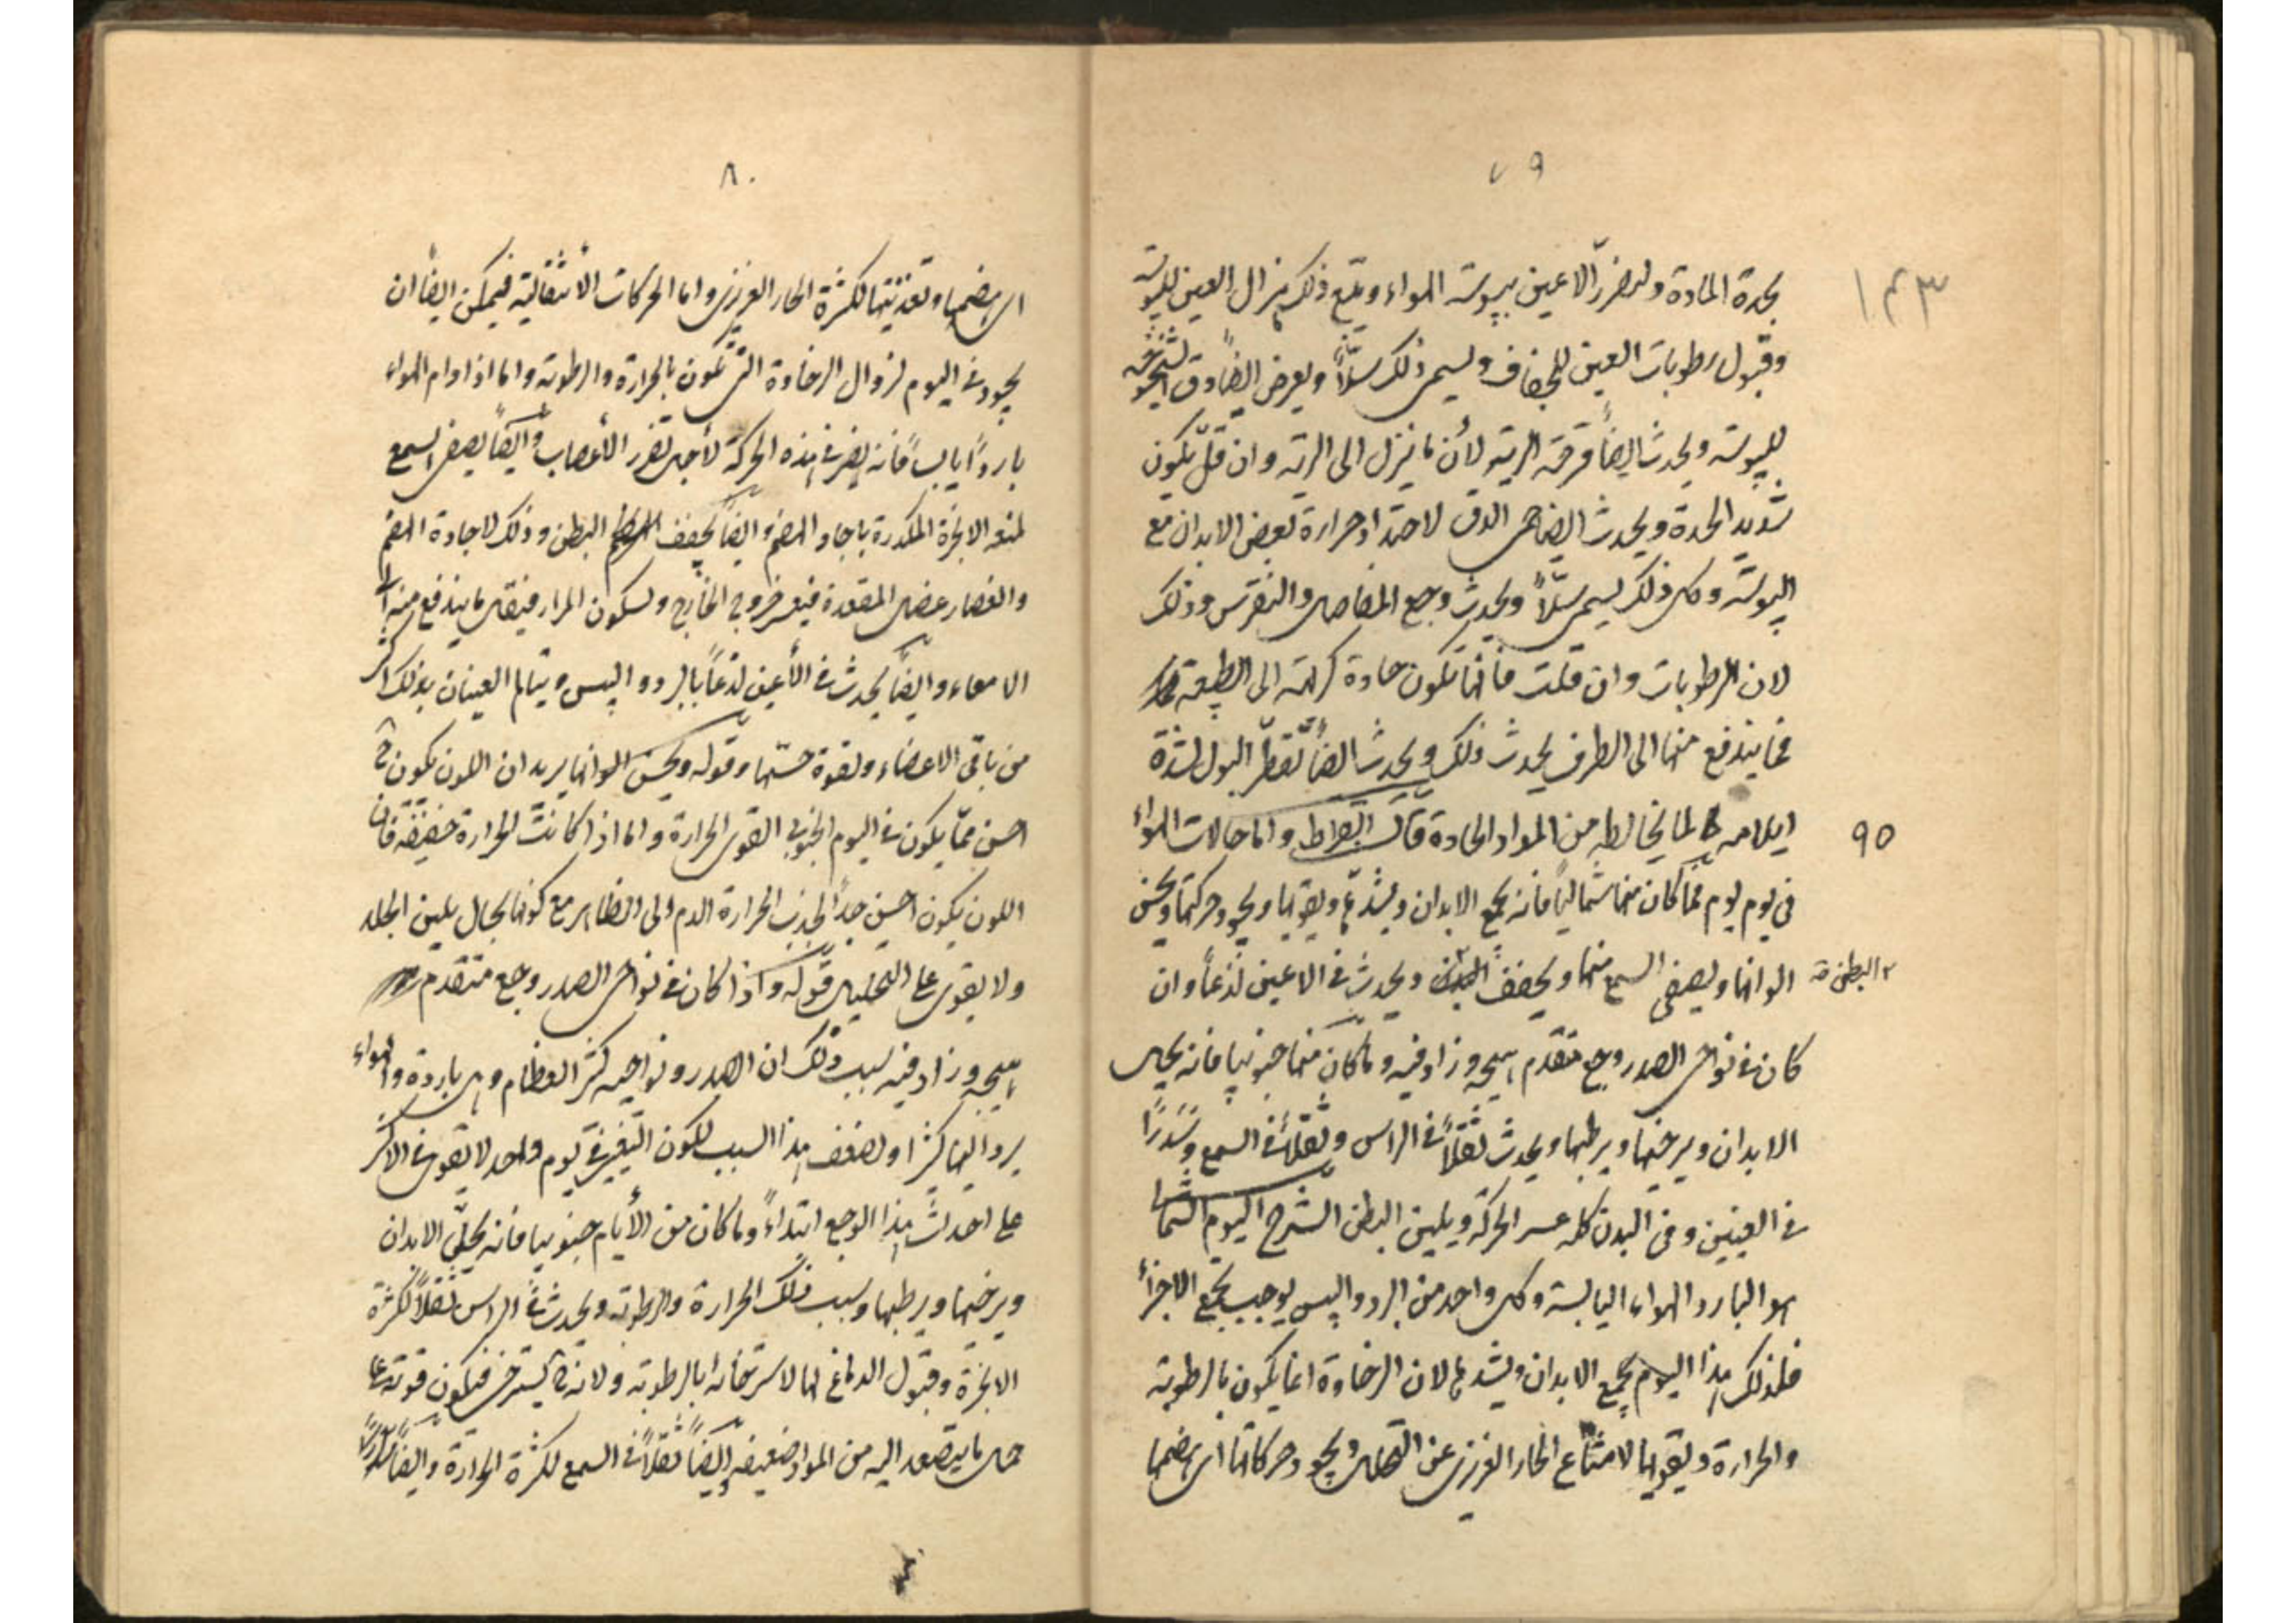 ٧٩
١٤٣
بحدة المادة ولتضرر الاعين بيبوسة الهواء ويتبع ذلك هزال العين لليبوسة
وقبول رطوبات العين للجفاف ويسمى ذلك سلاً ويعرض ايضاً دق الشيخوخة
لليبوسة ويحدث ايضاً قرحة الرية لأن ما ينزل الى الرية وان قلّ يكون
شديد الحدة ويحدث ايضا حمى الدق لاحتداد حرارة بعض الابدان مع
اليبوسة وكل ذلك يسمى سلاً ويحدث وجع المفاصل والنقرس وذلك
لان الرطوبات وان قلت فانها تكون حادة كريهة الى الطبيعة
فما يندفع منها الى الطرف يحدث ذلك ويحدث ايضاً تقطر البول لشدة
ايلامه لما يخالطه من المواد الحادة قال ابقراط واما حالات الهواء
٩٥
في يوم يوم فما كان منها شمالياً فانه يجمع الابدان ويشدها ويقويها ويجود حركتها ويحسن
الوانها ويصفى السمع منها ويجفف البدن ويحدث في الاعين لذعاً وان
البطن
كان في نواحى الصدر وجع متقدم هيجه وزاد فيه وما كان منها جنوبيا فانه يحل
الابدان ويرخيها ويرطبها ويحدث ثقلاً في الراس وثقلاً في السمع وسَدَراً
في العينين وفى البدن كله عسر الحركة ويلين البطن الشرح اليوم الشمالى
هو البارد الهواء اليابسة وكل واحد من البرد واليبس يوجب تجمع الاجزاء
فلذلك هذا اليوم يجمع الابدان ويشدها لان الرخاوة انما يكون بالرطوبة
والحرارة ويقويها لامتناع الحار الغريزى عن التحلل ويجود حركاتها اى هضمها
٨٠
اى هضمها وتغذيتها لكثرة الحار الغريزى واما الحركات الأنتقالية فيمكن ايضاً ان
يجود في اليوم لزوال الرخاوة التى تكون بالحرارة والرطوبة واما اذا دام الهواء
بارداً يابساً فانه يضر في هذه الحركة لأجل تضرر الأعصاب وايضاً يصفى السمع
لمنعه الابخرة المكدرة باجادة الهضم وايضاً يجفف البطن وذلك لاجادة الهضم
وانعصار عضل المقعدة فيعسر خروج الخارج ولسكون المرار فيقل ما يندفع منه الى
الامعاء وايضاً يحدث في الأعين لذعاً بالبرد واليبس ويتالم العينان بذلك اكثر
من باقى الاعضاء ولقوة حسّها وقوله ويحسن الوانها يريد ان اللون يكون ح
احسن ممّا يكون في اليوم الجنوبى القوى الحرارة واما اذا كانت الحرارة خفيفة فان
اللون يكون احسن جداً لجذب الحرارة الدم الى الظاهر مع كونها بحال يلين الجلد
ولا يقوى على التحليل قوله واذا كان في نواحى الصدر وجع متقدم
هيجه وزاد فيه سبب ذلك ان الصدر ونواحيه كثير العظام وهى باردة والهواء
يرد اليها كثيرا ولضعف هذا السبب لكون التغير في يوم واحد لا يقوى في الاكثر
على احداث هذا الوجع ابتداءً وما كان من الأيام جنوبيا فانه يحلّل الابدان
ويرخيها ويرطبها وسبب ذلك الحرارة والرطوبة ويحدث في الراس ثقلاً لكثرة
الابخرة وقبول الدماغ لها لاسترخائه بالرطوبة ولانه ح يسترخى فتكون قوته على
حمل ما يتصعد اليه من المواد ضعيفة وايضاً ثقلاً في السمع لكثرة الحرارة وايضاً سدراً